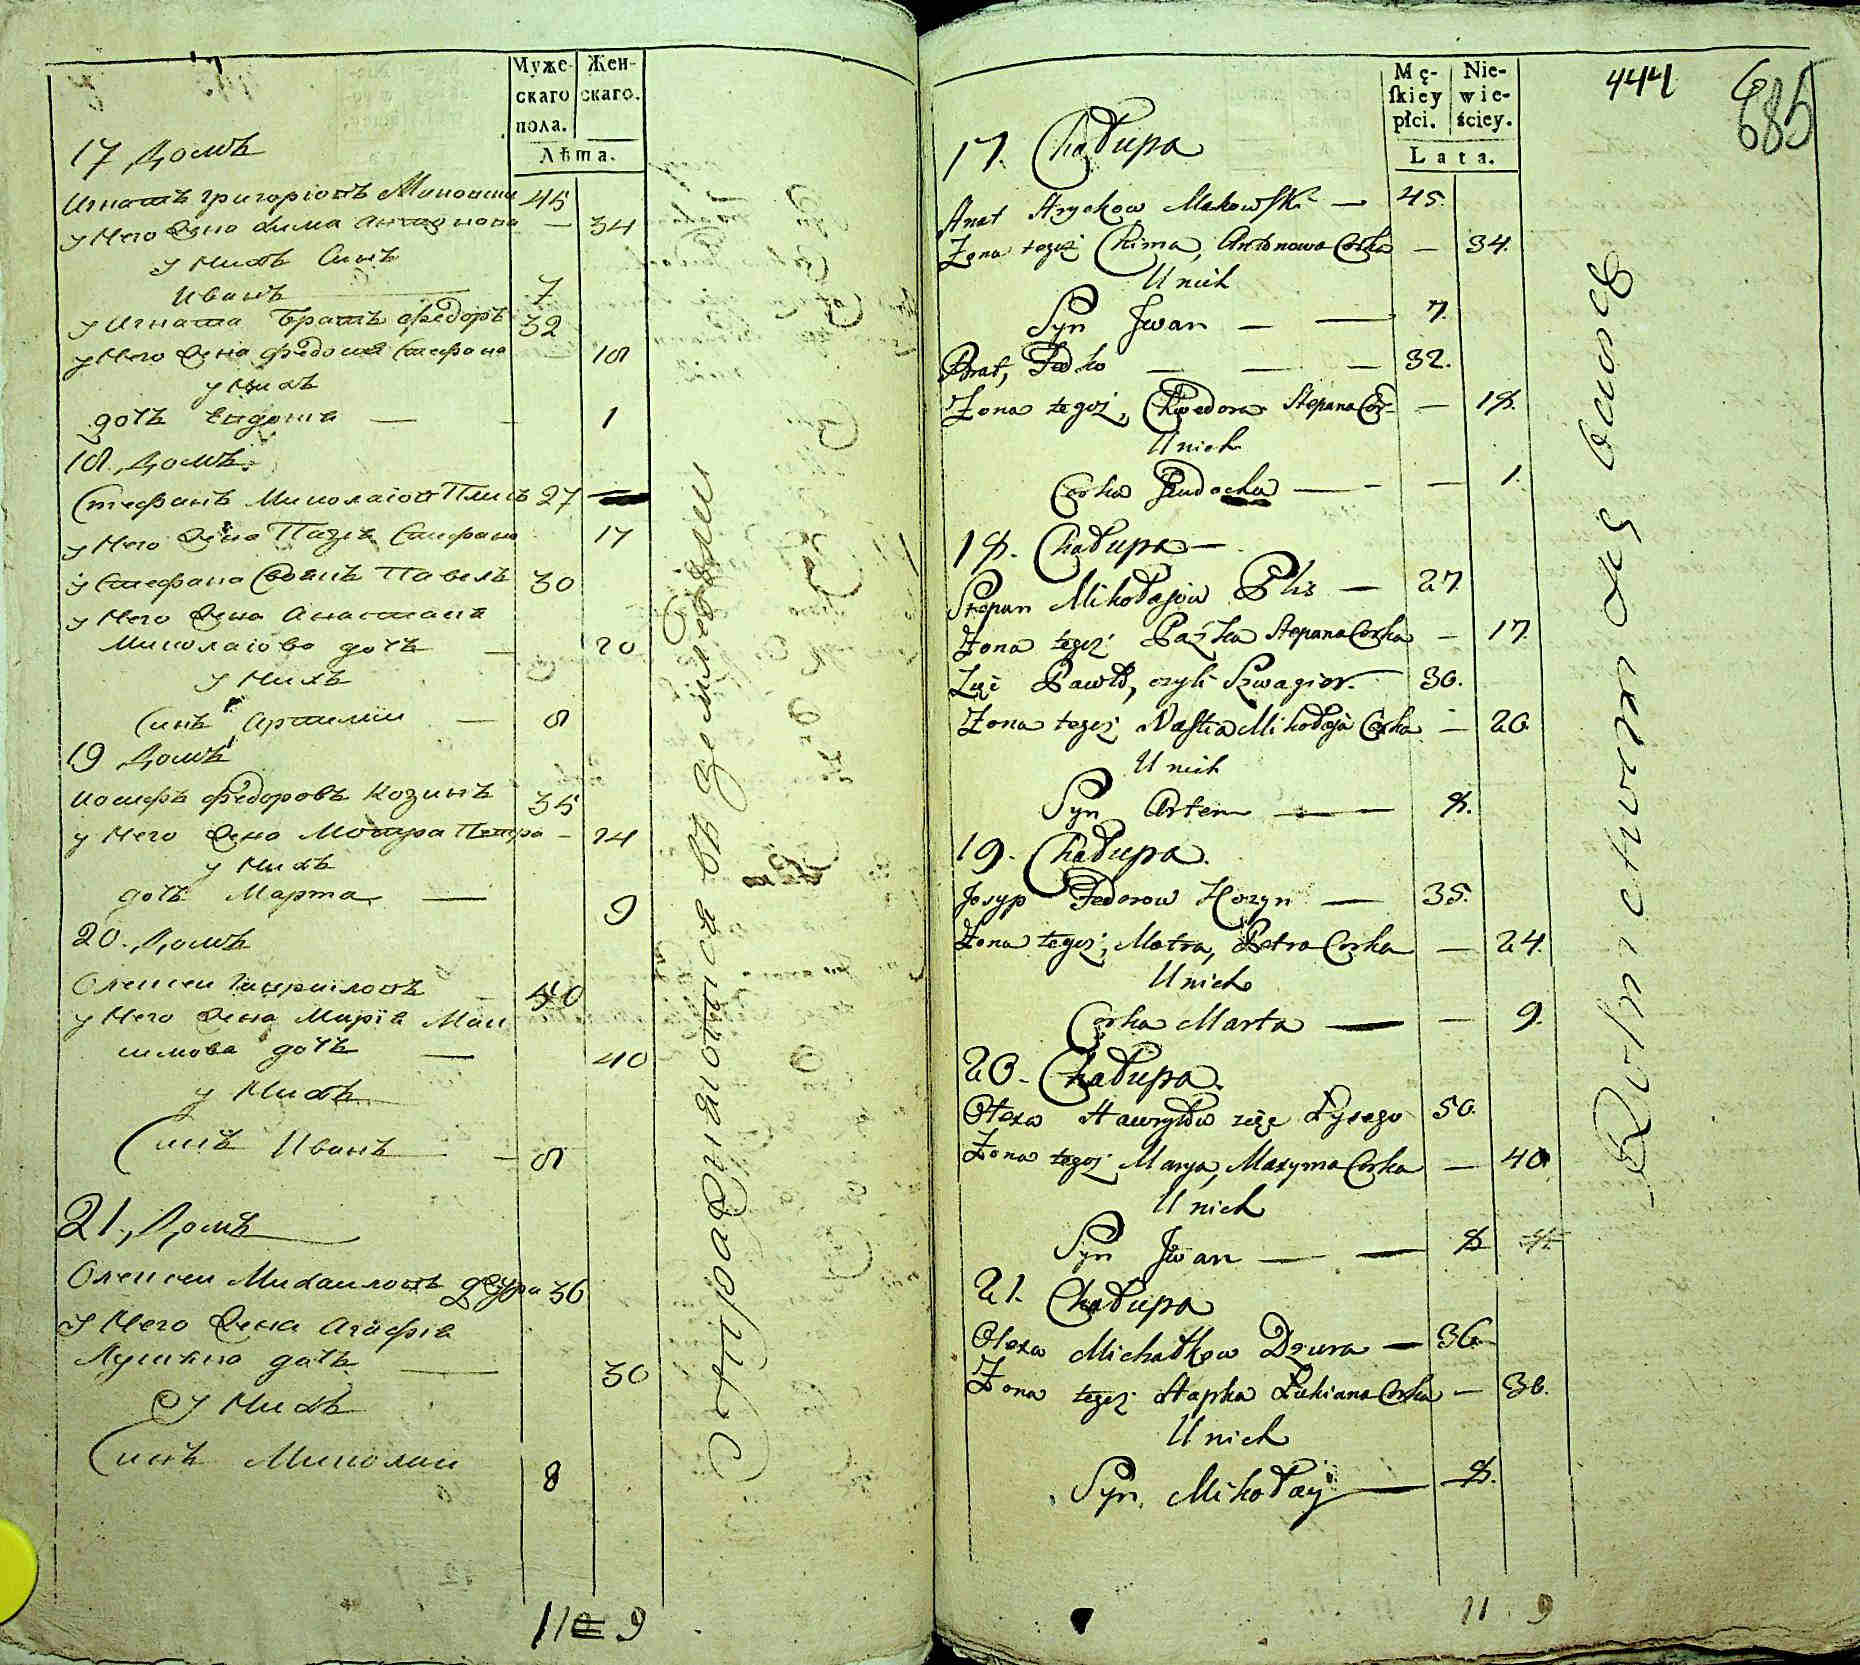 Муже-
скаго
пола.
Жен-
скаго.
Лѣта.
17 Домъ
Игнатъ Григоріовъ 45
у Него Жена Хима Антонова — 34
у Нихъ Синъ
Иванъ 7
у Игната Братъ Федоръ 32
у Него Жена Федосия Стефана 18
у Нихъ
дочь Евдоха — — 1
18 Домъ.
Стефанъ Миколаіов Плисъ 27
у Него Жена Пазя Стефана 17
у Стефана Своякъ Павелъ 30
у Него Жена Анастасия
Миколаіова дочь — 20
у Нихъ
Синъ Артимии — 8
19 Домъ
Иосифъ Федоровъ Козинъ 35
у Него Жена Мотра Петра — 24
у Нихъ
дочь Марта — 9
20. Домъ
Олексеи Гавриловъ — 50
у Него Жена Мария Мак
симова дочь — 40
у Нихъ
Синъ Иванъ — 8
21, Домъ
Олексеи Михаиловъ Дзюра 36
У Него Жена Агафия
Лукияна дочь — 30
У Нихъ
Синъ Миколаи 8
11 9
Упражняются въ земледелии
444
685
Mę-
skiey
płci.
Nie-
wie-
ściey.
Lata.
17. Chałupa
Hnat Hryckow Makowski — 45.
Żona tegoż Chima, Antonowa Corka — 34.
U nich
Syn Jwan — — 7.
Brat, Fedko — — — 32.
Żona tegoż, Chwedora Stepana Cor — 18.
U nich
Corka Jeudocha — — — 1.
18. Chałupa —
Stepan Mikołajow Plis — 27.
Żona tegoż Paźka Stepana Corka — 17.
Zięć Pawło, czyli Szwagier. 30.
Żona tegoż Nastia Mikołaja Corka — 20.
U nich
Syn Artem — — 8.
19. Chałupa.
Josyp Fedorow Kozyn — 35.
Żona tegoż, Motra, Petra Corka — 24.
U nich
Corka Marta — — 9.
20. Chałupa.
Olexa Hawryłow zięć Łysego 50.
Żona tegoż Marya, Maxyma Corka — 40
U nich
Syn Jwan — — 8
21. Chałupa
Olexa Michałkow Dzura — 36
Żona tegoż Hapka Lukiana Corka — 30.
U nich
Syn, Mikołay — 8.
11 . 9